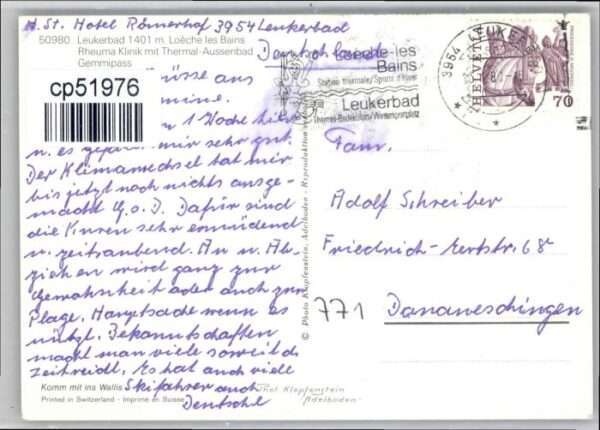 A. St. Hotel Römerhof 3954 Leukerbad
50980 Leukerbad 1401 m. Loèche les Bains
Rheuma Klinik mit Thermal-Aussenbad
Gemmipass
cp51976
Grüsse aus
1 Woche hier
u. es gefällt mir sehr gut.
Der Klimawechsel hat mir
bis jetzt noch nichts ausge-
macht G. s. D. Dafür sind
die Kuren sehr ermüdend
u. zeitraubend. An u. Ab-
ziehen wird ganz zur
Gewohnheit oder auch zur
Plage. Hauptsache wenn es
nützt. Bekanntschaften
macht man viele soweit d.
Zeit reicht. Es hat auch viele
Skifahrer auch
Deutschl
Komm mit ins Wallis
Printed in Switzerland - Imprimé en Suisse
Phot Klopfenstein
"Adelboden"
© Photo Klopfenstein, Adelboden - Reproduktion
Loèche-les
Bains
Station thermale/Sports d'hiver
Leukerbad
Thermal-Badekurort/Wintersportplatz
3954 LEUKERBAD
HELVETIA
70
Fam.
Adolf Schreiber
Friedrich-Ebertstr. 68
771 Donaueschingen